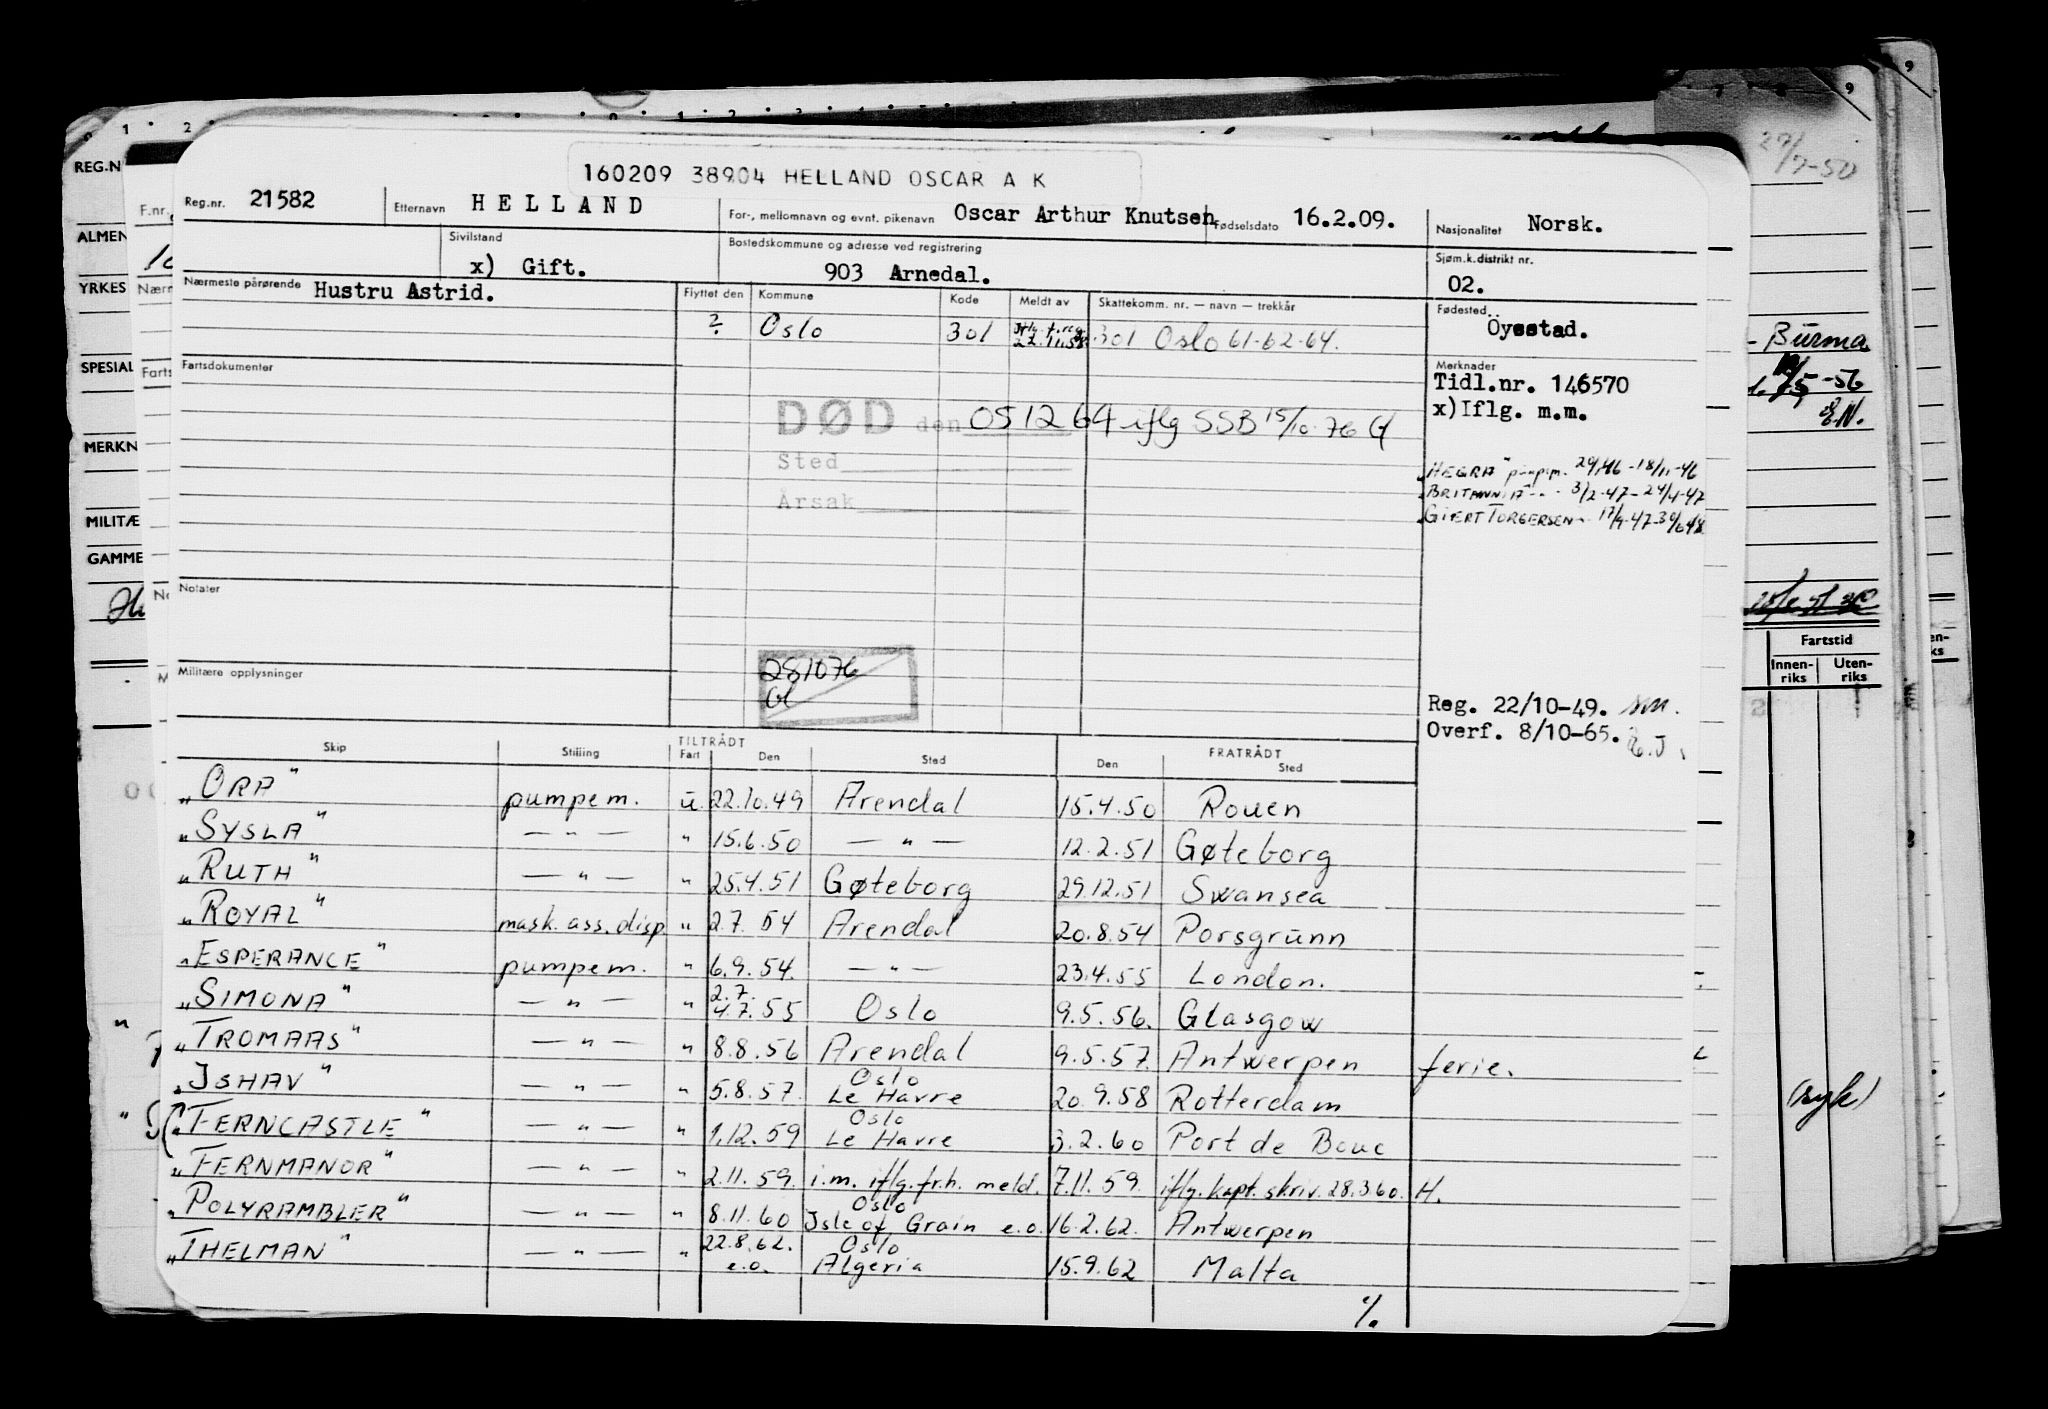 160209 38904 HELLAND OSCAR A K
Reg.nr. 21582 Etternavn HELLAND For-, mellomnavn og evnt. pikenavn Oscar Arthur Knutsen Fødselsdato 16.2.09. Nasjonalitet Norsk.
Sivilstand x) Gift. Bostedskommune og adresse ved registrering 903 Arnedal. Sjøm.k.distrikt nr. 02.
Nærmeste pårørende Hustru Astrid. Flyttet den Kommune Kode Meldt av Skattekomm. nr. — navn — trekkår Fødested Öyestad.
?. Oslo 301 301 Oslo 61-62-64.
Fartsdokumenter
Merknader
Tidl.nr. 146570
x)Iflg. m.m.
DØD den 051264 iflg SSB 15/10-76 Gl
Sted
Årsak
"HEGRA" pumpem. - 18/11-46
"BRITANNIA" - " - 3/2-47 - 24/4-47
GJERT TORGERSEN 17/9-47-30/6 48
Notater
281076
Gl
Militære opplysninger
Reg. 22/10-49.
Overf. 8/10-65. E.J.
TILTRÅDT FRATRÅDT
Skip Stilling Fart Den Sted Den Sted
"ORA" pumpem. u. 22.10.49 Arendal 15.4.50 Rouen
"SYSLA" — " — " 15.6.50 — " — 12.2.51 Gøteborg
"RUTH" — " — " 25.4.51 Gøteborg 29.12.51 Swansea
"ROYAL" mask.ass.disp. " 2.7.54 Arendal 20.8.54 Porsgrunn
"ESPERANCE" pumpem. " 6.9.54. — " — 23.4.55 London.
"SIMONA" — " — " 2.7. 4.7.55 Oslo 9.5.56. Glasgow
"TROMAAS" — " — " 8.8.56 Arendal 9.5.57. Antwerpen ferie.
"ISHAV" — " — " 5.8.57. Oslo Le Havre 20.9.58 Rotterdam
"FERNCASTLE" — " — " 1.12.59 Oslo Le Havre 3.2.60 Port de Bouc
"FERNMANOR" — " — " 2.11.59. i.m. iflg. frh. meld. 7.11.59. iflg. kapt. skriv. 28.3.60. H.
"POLYRAMBLER" — " — " 8.11.60 Oslo Isle of Grain e.o. 16.2.62. Antwerpen
"THELMAN" — " — " 22.8.62. e.o. Oslo Algeria 15.9.62 Malta
%.
REG.N
ALMEN
YRKES
SPESIAL
MERKN
MILITÆ
GAMME
F.nr.
Nærm
Farts
27/7-50
- Burma
-56
E.N.
Fartstid
Innen-riks Uten-riks
(syk)